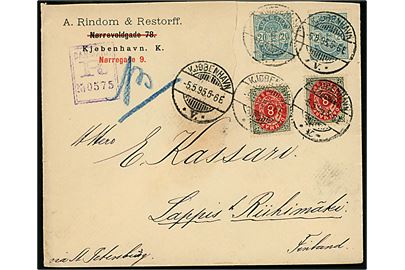 A. Rindom & Restorff.
Nørrevoldgade 78.
Kjøbenhavn. K.
Nørregade 9.
R
No 575
KJØBENHAVN
5.5.95.5-6E
V.
20 20
8
8
Herr
E. Kassari.
Lappis & Riihimäki.
Finland.
via St. Petersburg.